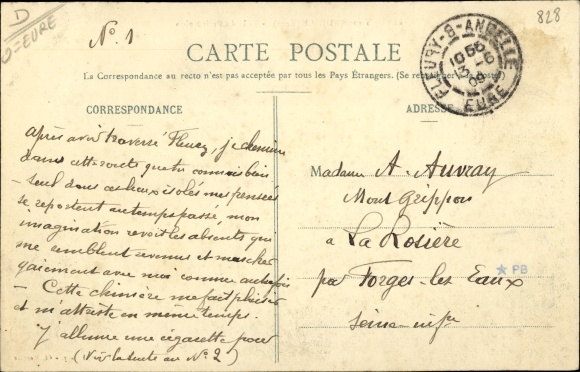 D
D=EURE
N. 1
828
CARTE POSTALE
La Correspondance au recto n'est pas acceptée par tous les Pays Étrangers. (Se renseigner à la poste)
FLEURY-S-ANDELLE
10 50
3 -6
09
EURE
CORRESPONDANCE
après avoir traversé Fleury, je chemine
dans cette route que tu connais bien
- seul dans ces lieux isolés mes pensées
se reportent au temps passé, mon
imagination revoit les absents, qui
me semblent revenus et marcher
gaiement avec moi comme autrefois
- Cette chimère me fait plaisir
et m'attriste en même temps.
J'allume une cigarette pour
(Voir la suite au N° 2)
ADRESSE
Madame A. Auvray
Mont Grippon
à La Rosière
par Forges-les-Eaux
Seine-infre
PB